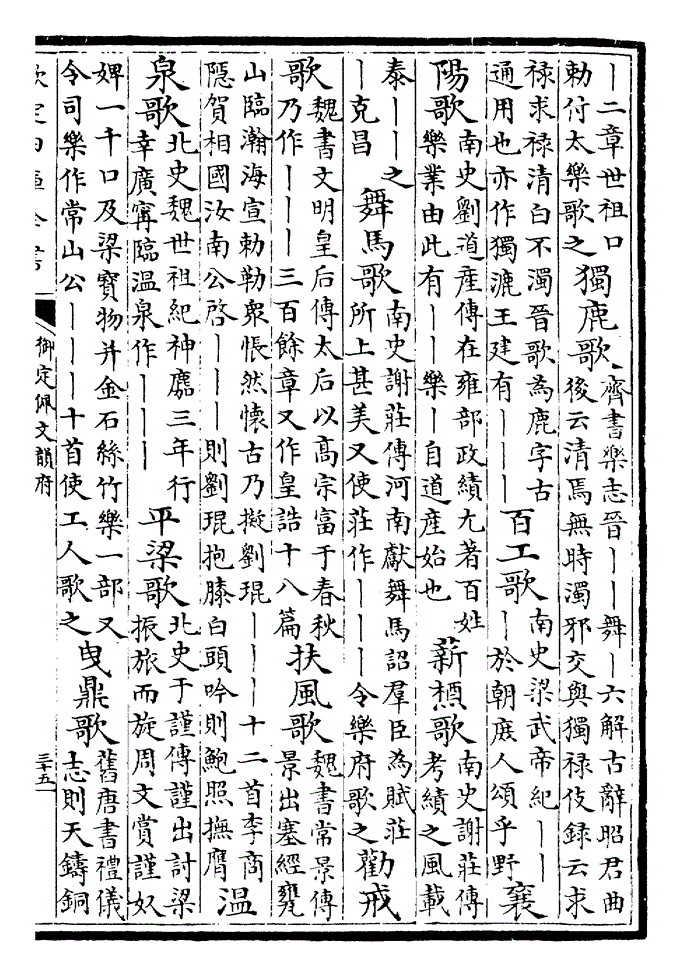 ｜二章世祖口
勅付太樂歌之
獨鹿歌
齊書樂志晉｜｜舞｜六解古辭昭君曲
後云清焉無時濁邪交與獨禄伎録云求
禄求禄清白不濁晉歌為鹿字古
通用也亦作獨漉王建有｜｜｜
百工歌
南史梁武帝紀｜｜
｜於朝庶人頌乎野
襄
陽歌
南史劉道産傳在雍部政績尤著百姓
樂業由此有｜｜樂｜自道産始也
薪槱歌
南史謝莊傳
考績之風載
泰｜｜之
｜克昌
舞馬歌
南史謝莊傳河南獻舞馬詔羣臣為賦莊
所上甚美又使莊作｜｜｜令樂府歌之
勸戒
歌
魏書文明皇后傳太后以髙宗富于春秋
乃作｜｜｜三百餘章又作皇誥十八篇
扶風歌
魏書常景傳
景出塞經瓮
山臨瀚海宣勅勒衆悵然懷古乃擬劉琨｜｜｜十二首李商
隠賀相國汝南公啓｜｜｜則劉琨抱膝白頭吟則鮑照撫膺
温
泉歌
北史魏世祖紀神䴥三年行
幸廣甯臨温泉作｜｜｜
平梁歌
北史于謹傳謹出討梁
振旅而旋周文賞謹奴
婢一千口及梁寳物并金石絲竹樂一部又
令司樂作常山公｜｜｜十首使工人歌之
曳鼎歌
舊唐書禮儀
志則天鑄銅
欽定四庫全書
御定佩文韻府
三十五